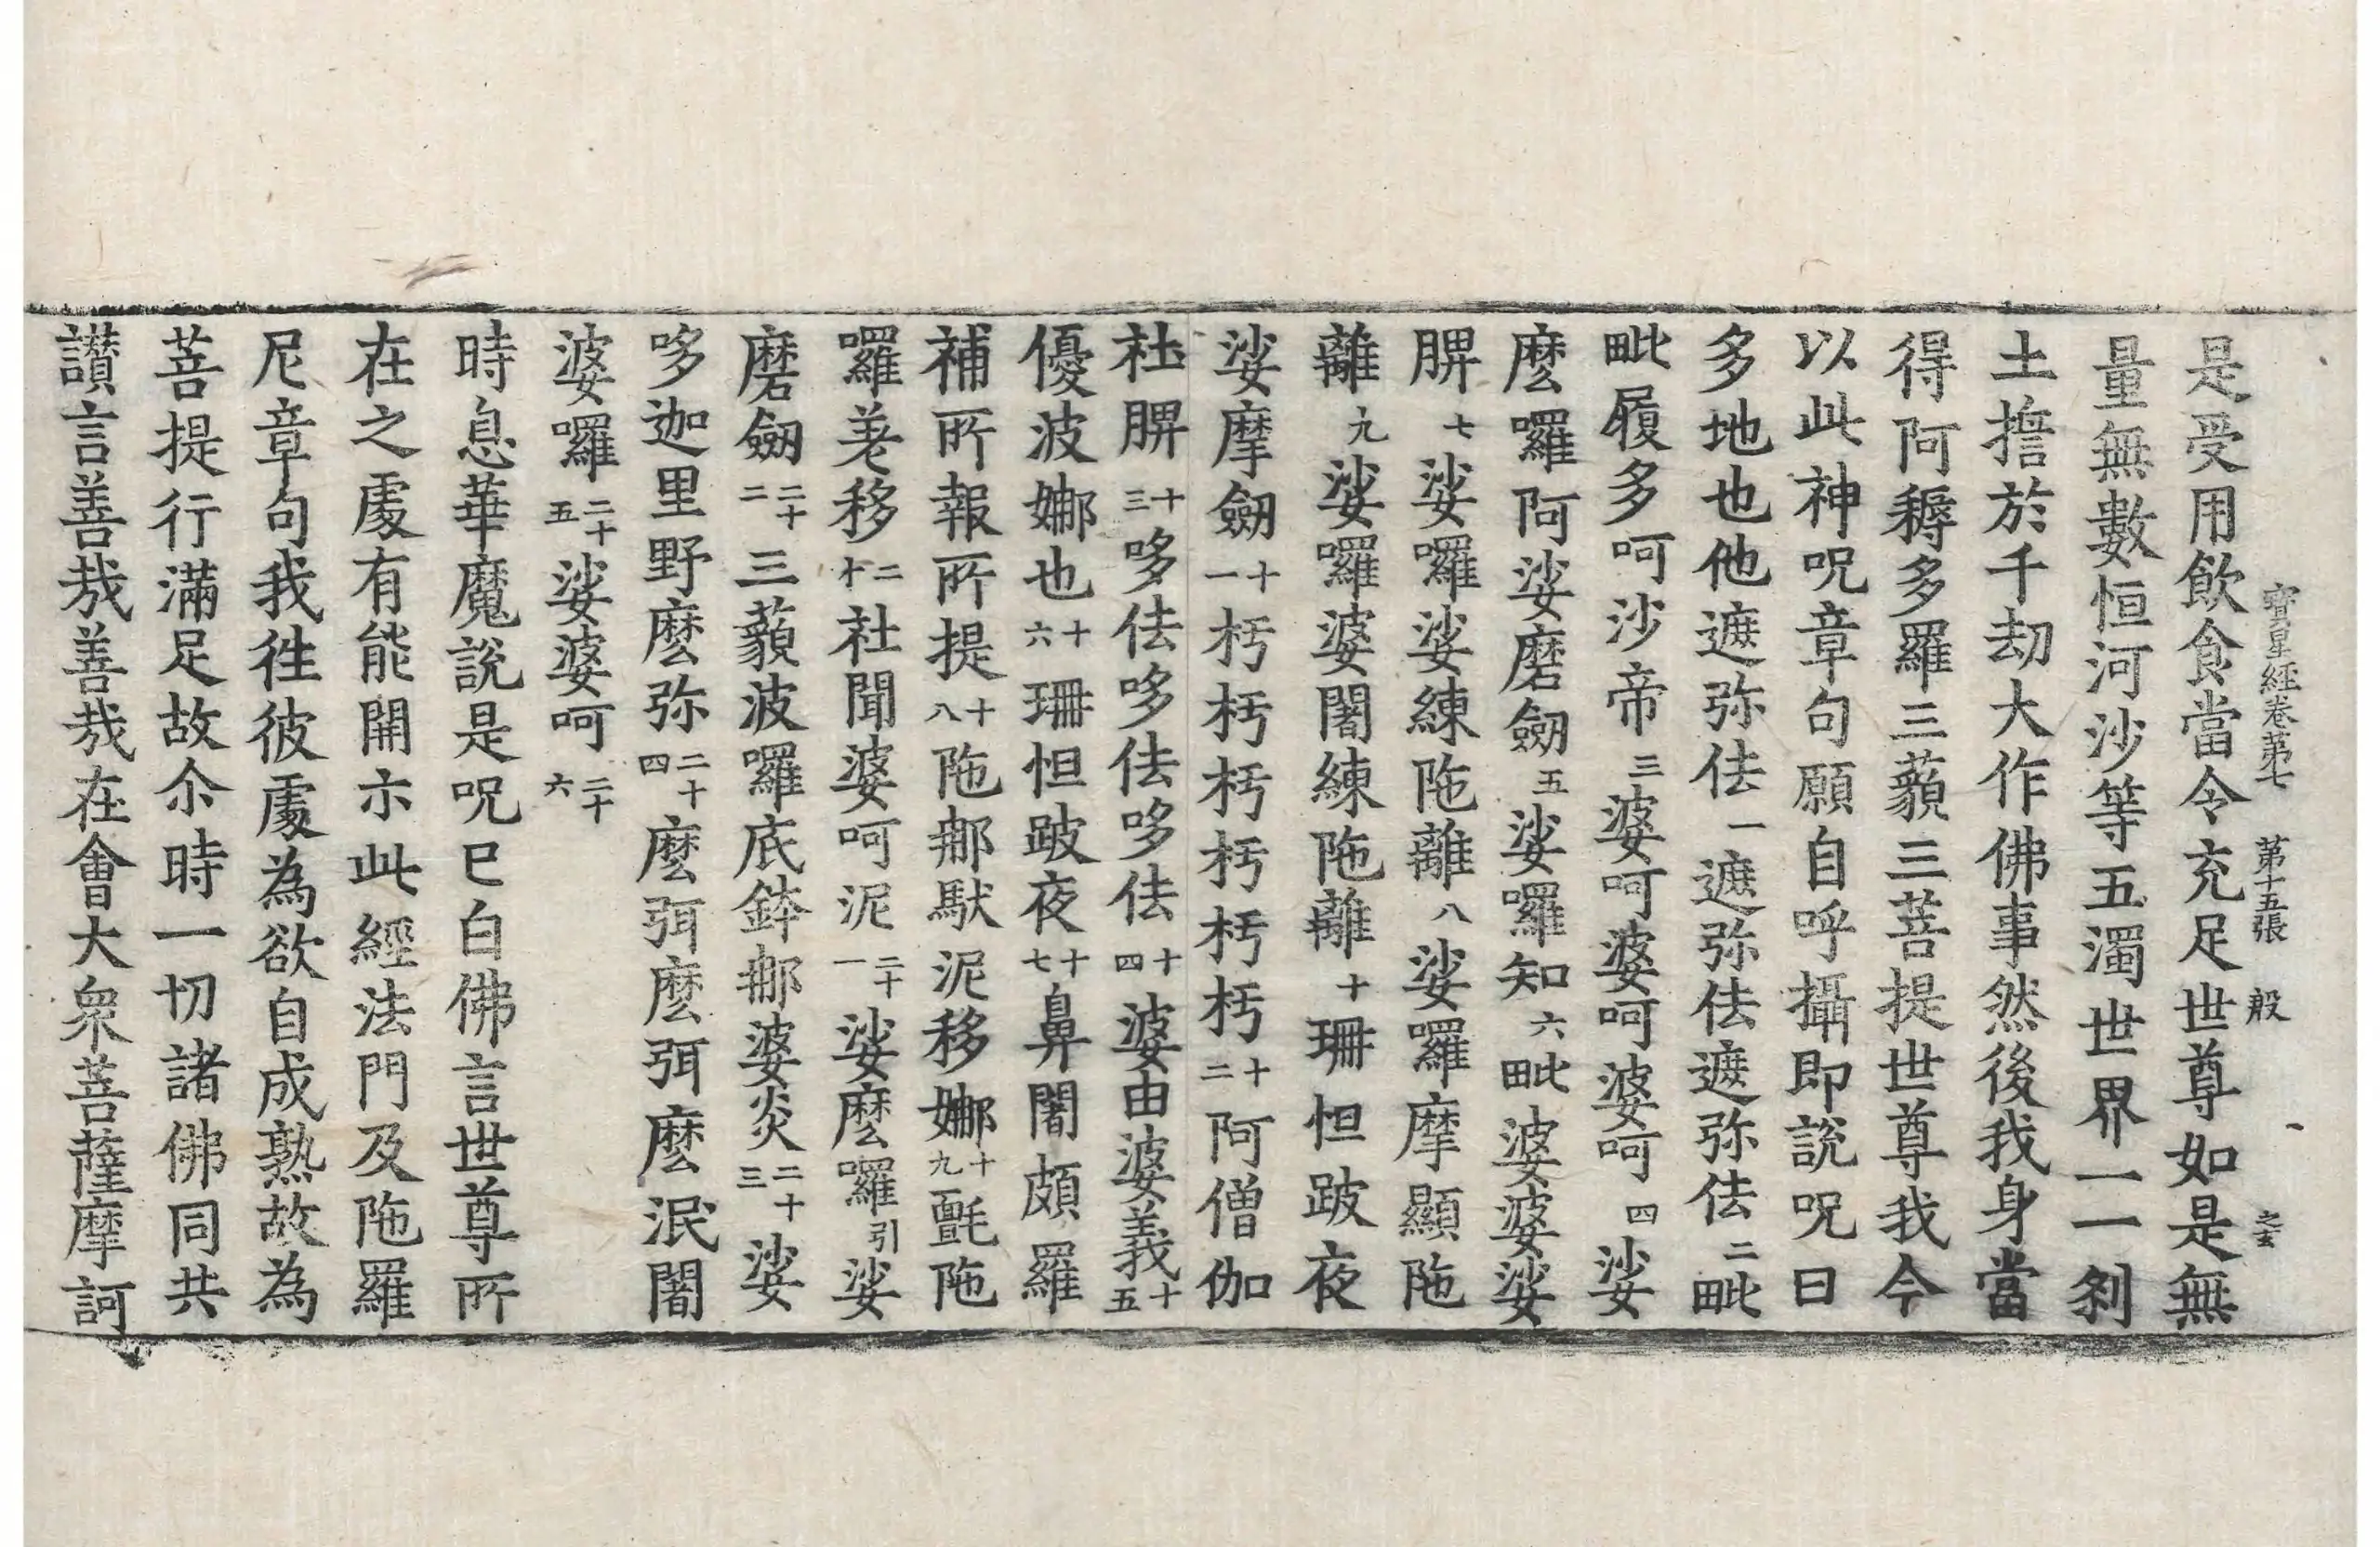 寶星經卷第七　第十五張　般
是受用飲食當令充足世尊如是無
量無數恒河沙等五濁世界一一刹
土擔於千劫大作佛事然後我身當
得阿耨多羅三藐三菩提世尊我今
以此神呪章句願自呼攝即說呪曰
多地也他遮弥佉一遮弥佉遮弥佉二毗
毗履多呵沙帝三婆呵婆呵婆呵四娑
麼囉阿娑磨劒五娑囉知六毗婆婆娑
髀七娑囉娑練陁離八娑囉摩顯陁
離九娑囉婆闍練陁離十珊怛跛夜
娑摩劒十一杇杇杇杇杇杇十二阿僧伽
社髀十三哆佉哆佉哆佉十四婆由婆義十五
優波娜也十六珊怛跛夜十七鼻闍頗羅
補所報所提十八陁䣕馱泥移娜十九氎陁
囉䒵移二十社聞婆呵泥二十一娑麼囉引娑
磨劒二十二三藐波囉底鉢䣕婆炎二十三娑
哆迦里野麼弥二十四麼弭麼弭麼泯闍
婆囉二十五娑婆呵二十六
時息華魔說是呪已白佛言世尊所
在之處有能開示此經法門及陁羅
尼章句我徃彼處為欲自成熟故為
菩提行滿足故尒時一切諸佛同共
讃言善㢤善㢤在會大衆菩薩摩訶